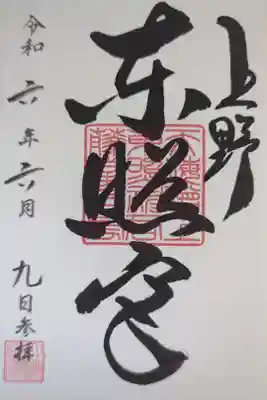 上野
東照宮
令和六年六月九日参拝